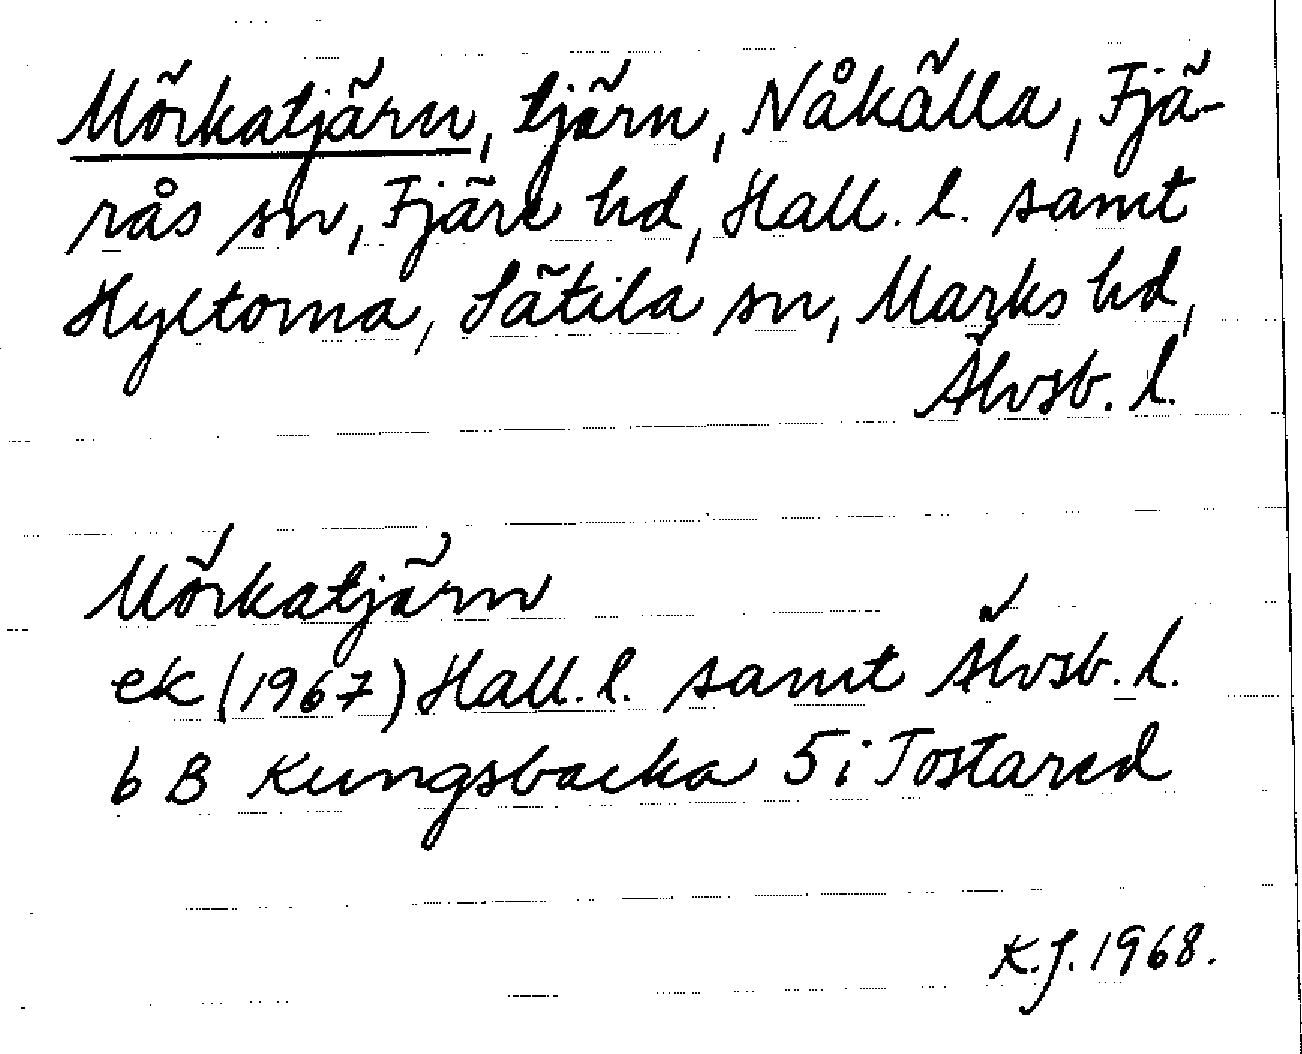 Mörkatjärn, tjärn, Nåkälla, Fjä-
rås sn, Fjäre hd, Hall. l. samt
Hyltorna, Sätila sn, Marks hd,
Älvsb. l.
Mörkatjärn
ek (1967) Hall. l. samt Älvsb. l.
6 B Kungsbacka 5 i Tostared
K.J. 1968.